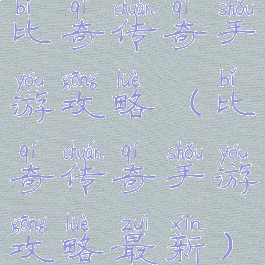 bǐ qí chuán qí shǒu
比奇传奇手
yóu gōng luè bǐ
游攻略（比
qí chuán qí shǒu yóu
奇传奇手游
gōng luè zuì xīn
攻略最新）